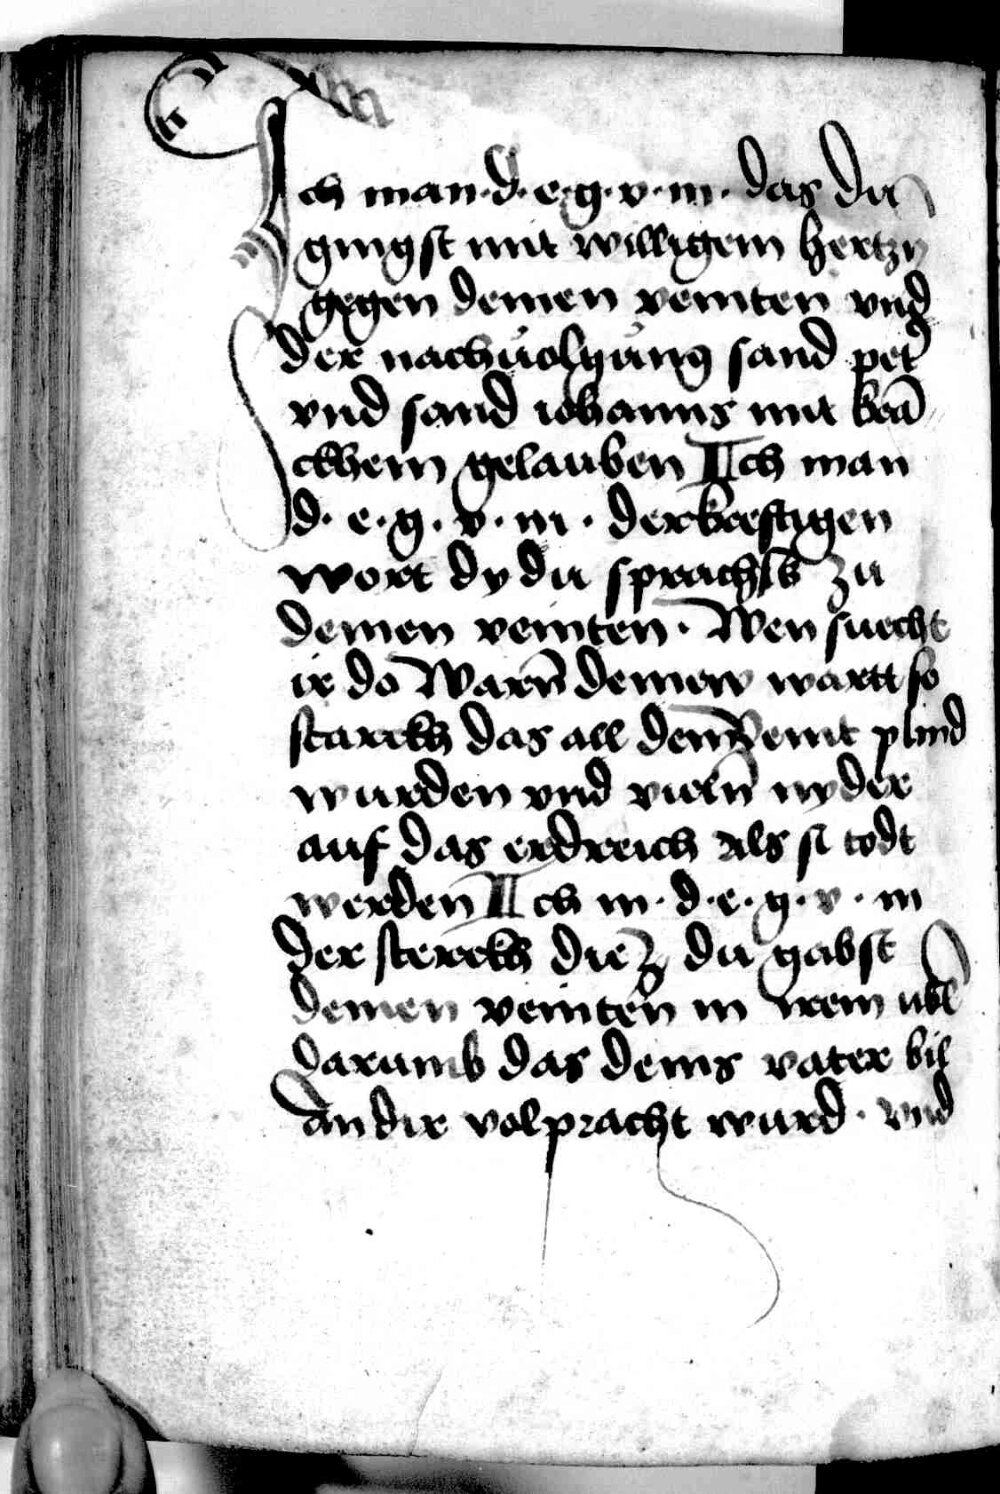 Ich man · d · e · g · v · m · das du
gingst mit willigem hertzn
gegen deinen veinten vnd
der nachuolgung sand pet̄
vnd sand iohanns mit krā
ckhem gelauben Ich man
d · e · g · v · m · der krefftigen
wort dy du sprachst zu
deinen veinten · Wen suecht
ir do Warn̄ deinew wartt so
starckh das all dein veint plind
wurden vnd vieln̄ nyder
auf das erdreich als si todt
werden Ich m · d · e · g · v · m
der sterckh die du gabst
deinen veinten in irem ubl̄
darumb das deins vater bil
an dir volpracht wurd · vnd